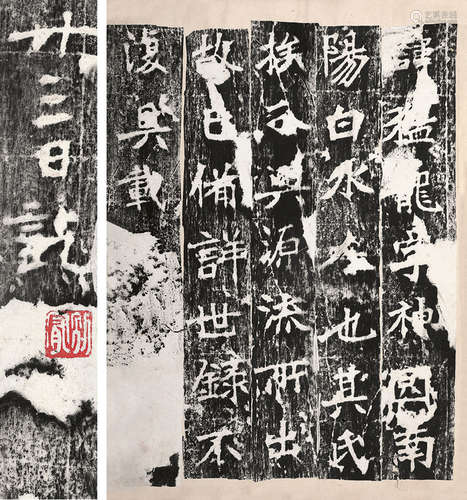 諱猛龍字神囧南
陽白水人也其氏
族分興源流所出
故已備詳世錄不
復具載
廿三日訖